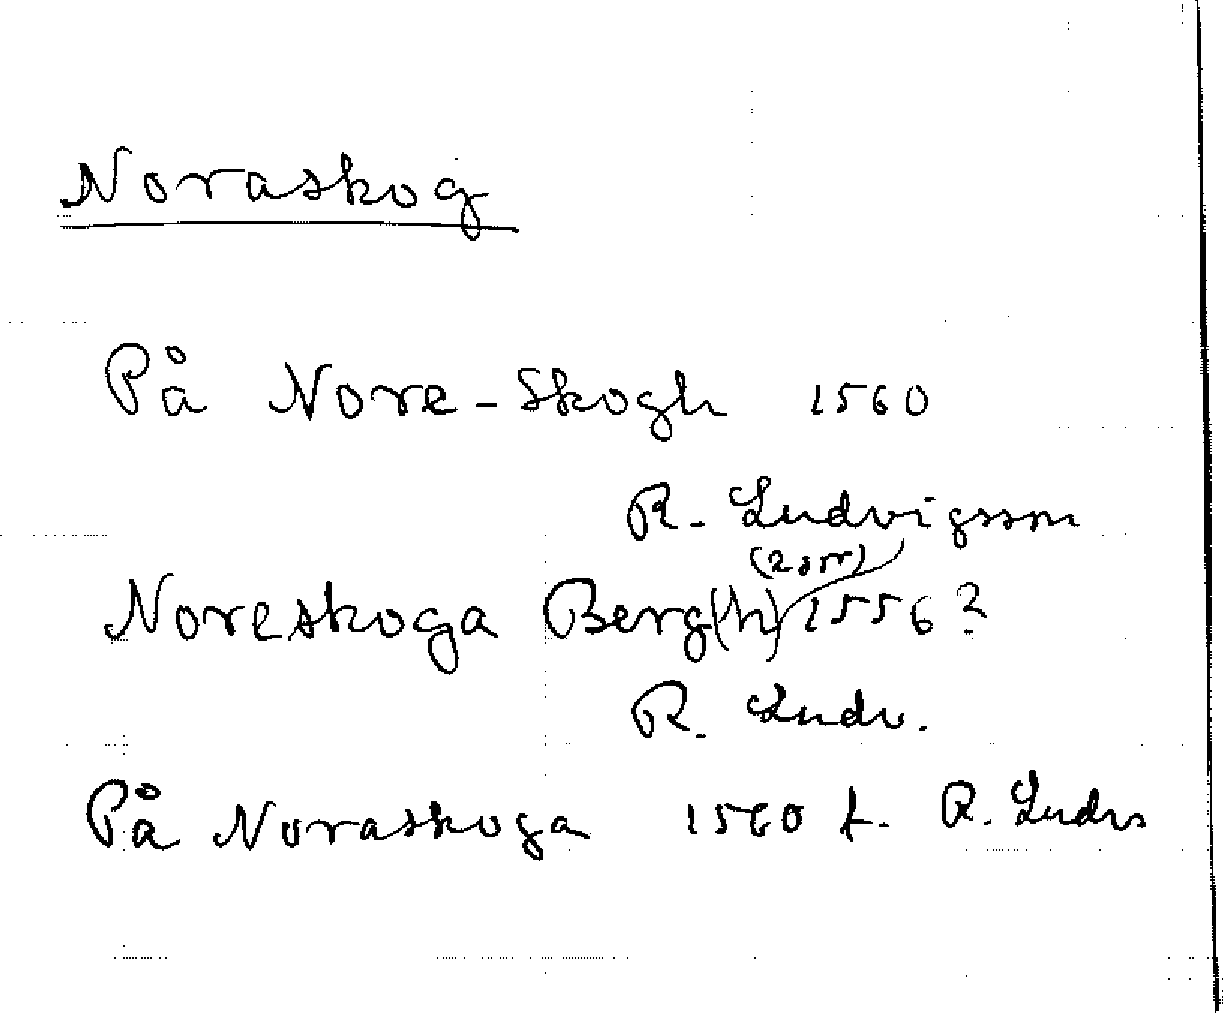 Noraskog
På Nore-Skogh 1560
R. Ludvigsson
(2 srr)
Noreskoga Berg(h) 1556?
R. Ludv.
På Noraskoga 1560 t. R. Ludvs